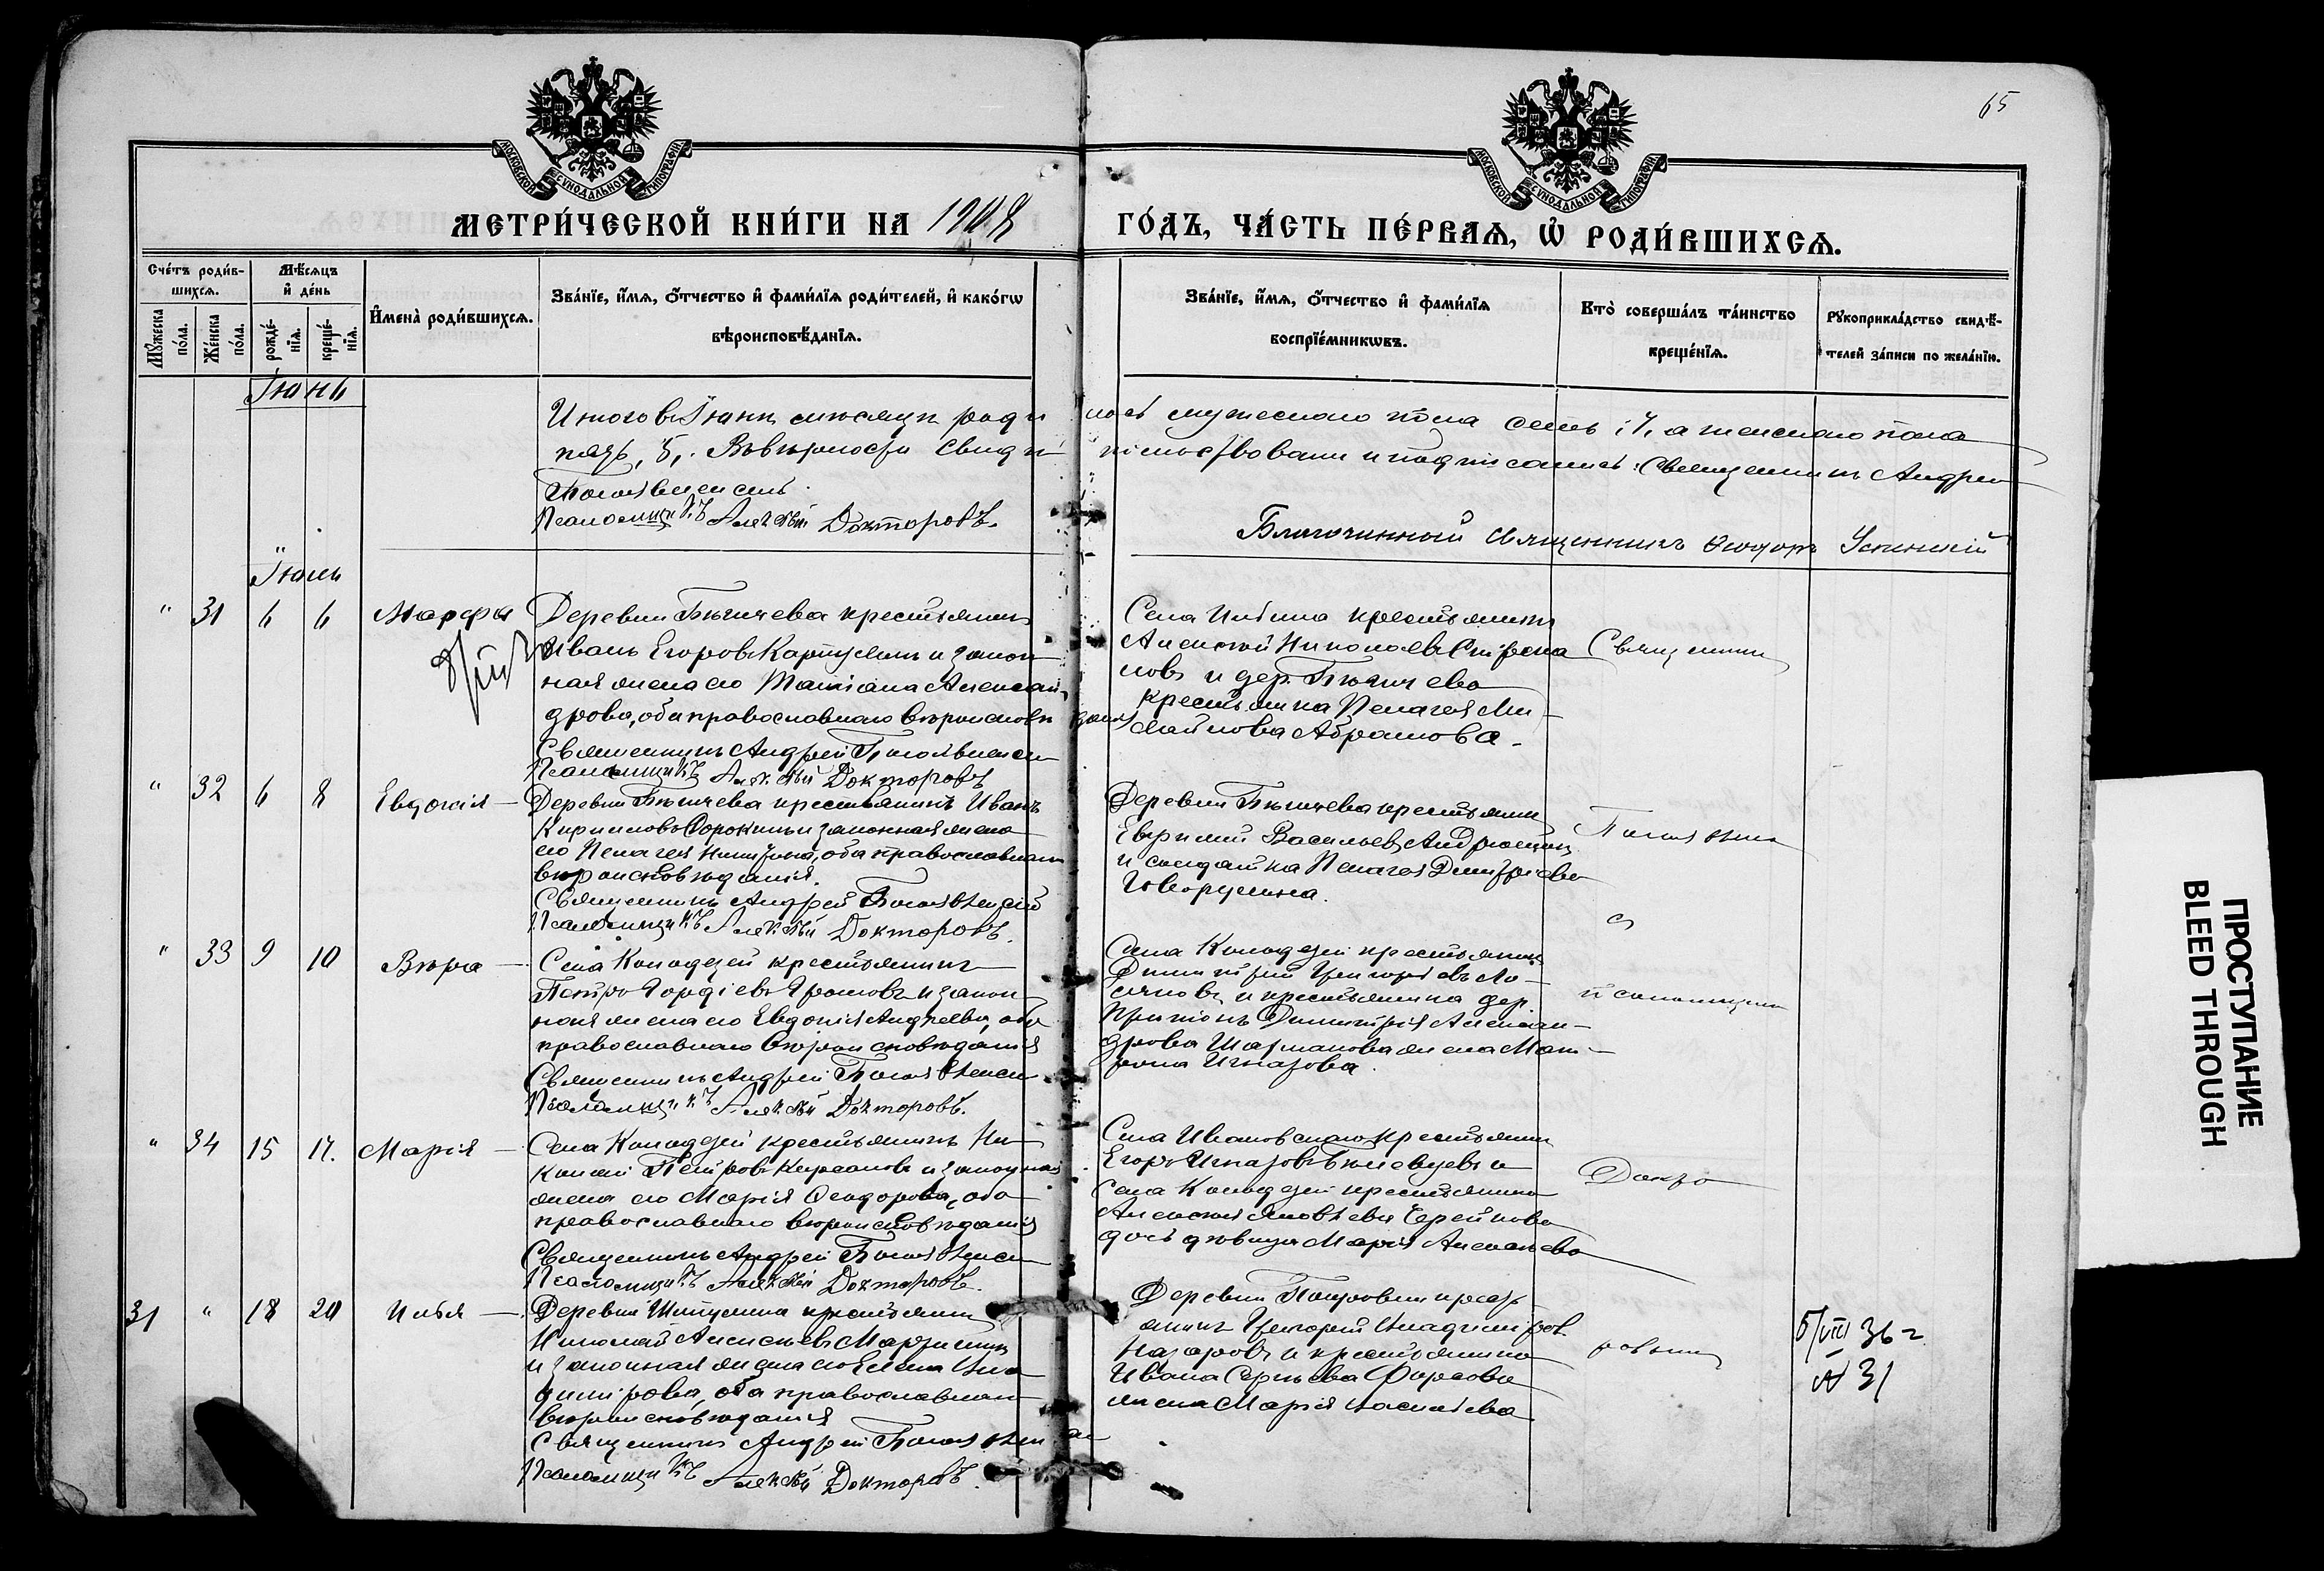 65
МОСКОВСКОЙ СѴНОДАЛЬНОЙ ТИПОГРАФІИ
МОСКОВСКОЙ СѴНОДАЛЬНОЙ ТИПОГРАФІИ
МЕТРИ́ЧЕСКОЙ КНИ́ГИ НА 1908 ГО́ДЪ, ЧА́СТЬ ПЕ́РВАѦ, Ѡ҆ РОДИ́ВШИХСѦ.
Сче́тъ роди́в-
шихсѧ.
Мѹ́жеска по́ла.
Же́нска по́ла.
Мѣ́сѧцъ
и҆ де́нь
рожде́-
нїѧ.
креще́-
нїѧ.
И҆мена̀ роди́вшихсѧ.
Зва́нїе, и҆́мѧ, ѻ҆́тчество и҆ фами́лїѧ роди́телей, и҆ како́гѡ
вѣроисповѣ́данїѧ.
Зва́нїе, и҆́мѧ, ѻ҆́тчество и҆ фами́лїѧ
воспрїе́мникѡвъ.
Кто̀ соверша́лъ та́инство
креще́нїѧ.
Рѹкоприкла́дство свидѣ́-
телей за́писи по жела́нїю.
Іюнь
Итого въ Іюнѣ мѣсяцѣ роди лось мужескаго пола семь, 7, а женскаго пола
пять, 5,. Въ вѣрности свидѣ тельствовали и подписались: Священникъ Андрей
Боголѣпенскій
Псаломщикъ Алексѣй Докторовъ.
Благочинный Священникъ Ѳеодоръ Успенскій
Іюль
" 31 6 6 Марѳа
Деревни Бѣгичева крестьянинъ
Иванъ Егоровъ Карпушинъ и закон-
ная жена его Татіана Алексан-
дрова, оба православнаго вѣроисповѣ данія
Священникъ Андрей
Псаломщикъ Алексѣй Докторовъ
крестьянинъ
Алексѣй Николаевъ
и дер. Бѣгичева
крестьянка Пелагея Ми-
хайлова Абрамова.
Священник
" 32 6 8 Евдокія
Деревни Бѣгичева крестьянинъ Иванъ
Кирилловъ Сорокинъ и законная жена
его Пелагея Никитина, оба православнаго
вѣроисповѣданія.
Священникъ Андрей
Псаломщикъ Алексѣй Докторовъ.
Деревни Бѣгичева крестьянинъ
Евфимій Васильевъ Андрюшинъ
и солдатка Пелагея Димитріева
" 33 9 10 Вѣра
Села Колодезей крестьянинъ
Петръ Гордіевъ Громовъ и закон-
ная жена его Евдокія Андреева, оба
православнаго вѣроисповѣданія
Священникъ Андрей
Псаломщикъ Алексѣй Докторовъ.
Села Колодезей крестьянинъ
Димитрій Григорьевъ Ло-
и крестьянина дер.
Димитрія Алексан-
дрова Шарманова жена Мат-
рона Игнатова.
съ
псаломщикомъ
" 34 15 17. Марія
Села Колодезей крестьянинъ Ни-
колай Петровъ Кирсановъ и законная
жена его Марія Ѳеодорова, оба
православнаго вѣроисповѣданія
Священникъ Андрей
Псаломщикъ Алексѣй Докторовъ.
Села Ивановскаго крестьянинъ
Егоръ Игнатовъ и
Села Колодезей крестьянина
Алексѣя Яковлева
дочь дѣвица Марія Алексѣева
Докто
31 " 18 20 Илья
Деревни крестьянинъ
Николай Алексѣевъ Мартышинъ
и законная жена его Елена Вла-
димірова, оба православнаго
вѣроисповѣданія
Священникъ Андрей
Псаломщикъ Алексѣй Докторовъ.
Деревни Покровки кресть-
янинъ Григорій Владиміров
Назаровъ и крестьянина
Ивана Сергѣева Фирсова
жена Марія Васильева
ровымъ
5/VIII 36 г
№ 31
ПРОСТУПАНИЕ
BLEED THROUGH